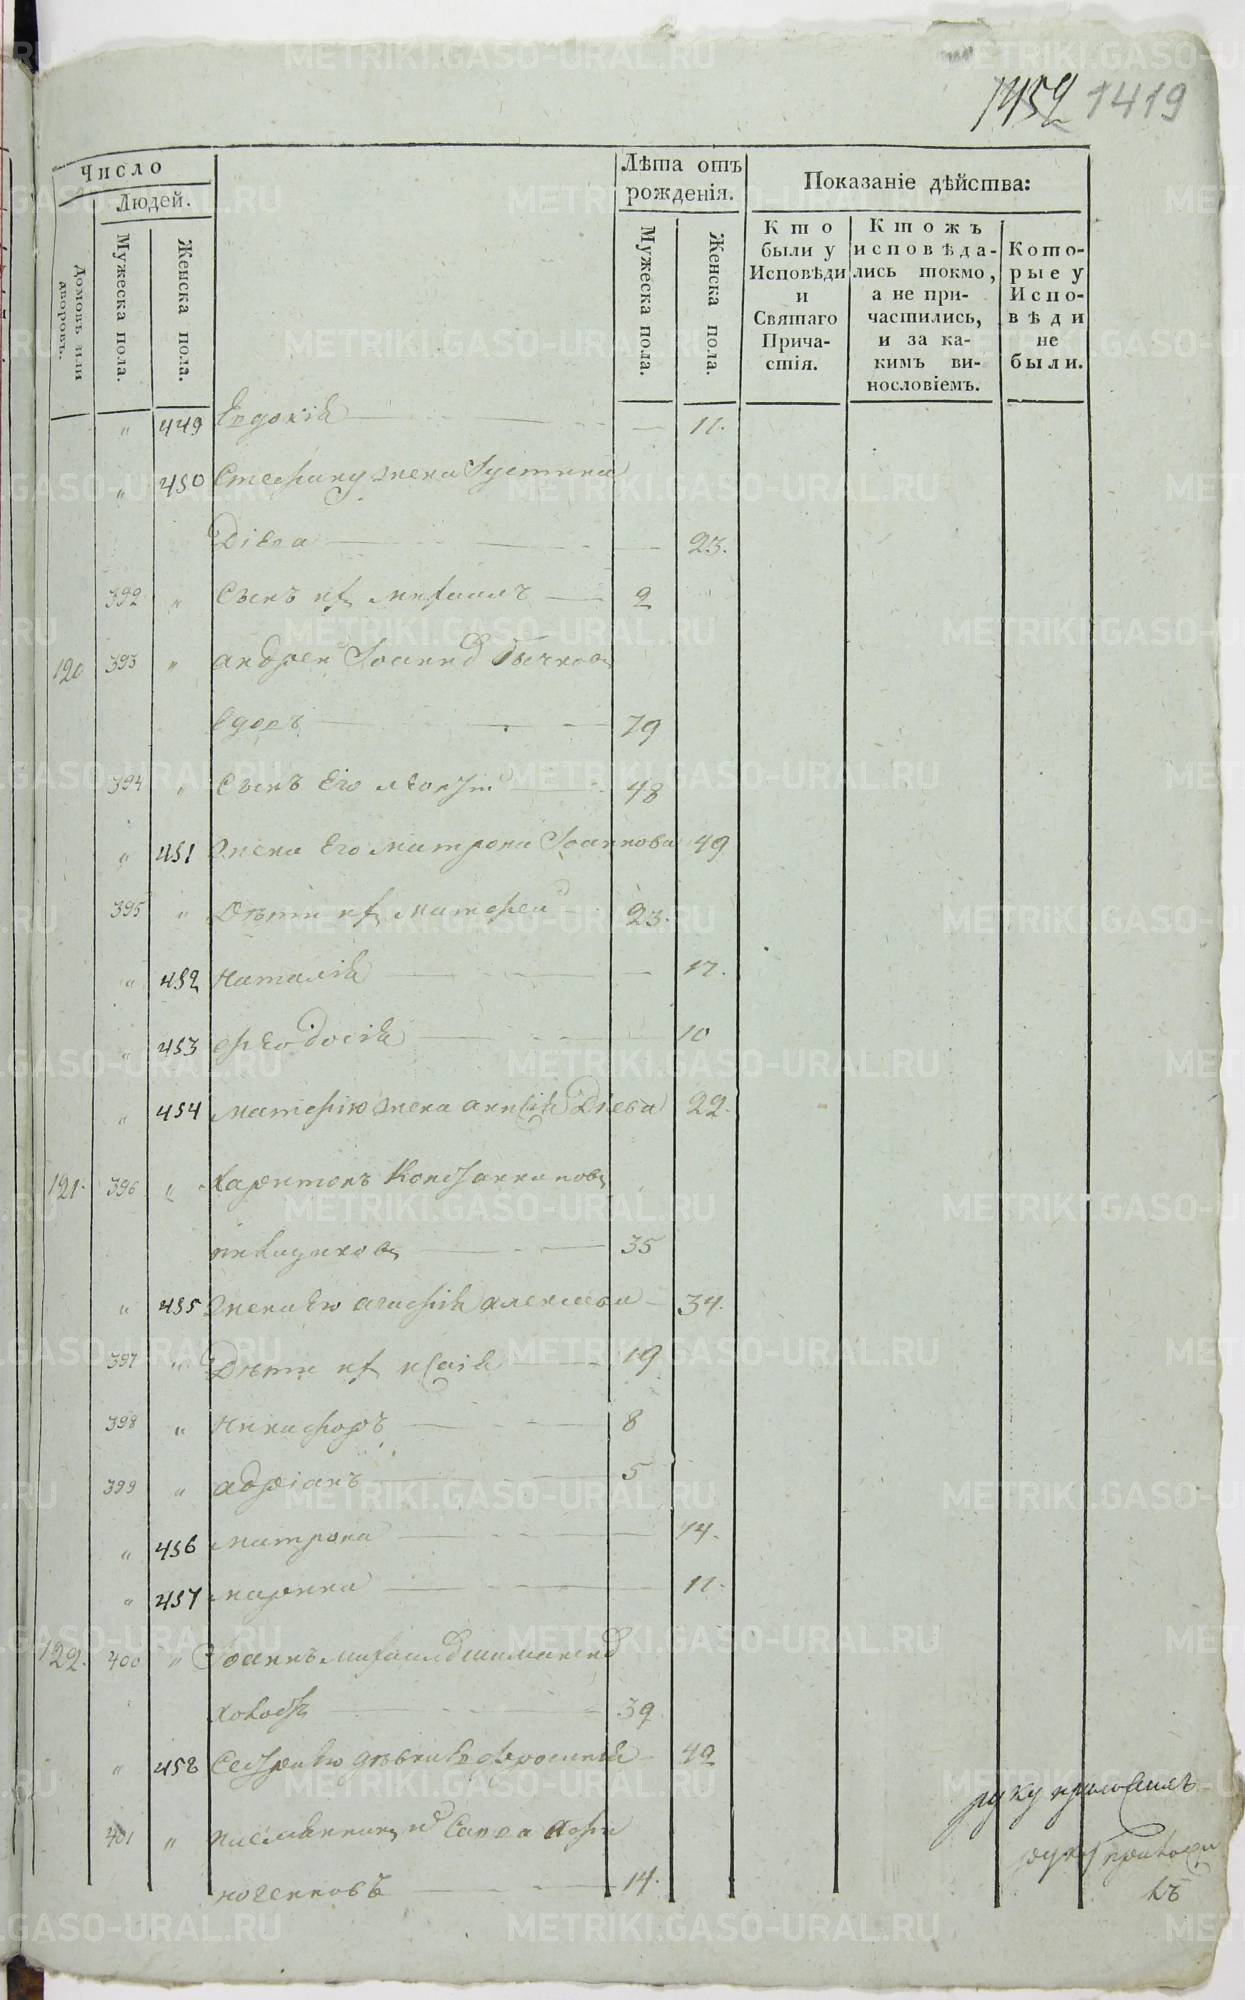 1452 1419
Число
Людей.
Домовъ или дворовъ.
Мужеска пола.
Женска пола.
Лѣта отъ рожденія.
Мужеска пола.
Женска пола.
Показаніе дѣйства:
Кто были у Исповѣди и Святаго Причастія.
Ктожъ исповѣдались токмо, а не причастились, и за какимъ винословіемъ.
Которые у Исповѣди не были.
" 449 Евдокія 11.
" 450 Стефану жена Іустина
Діева 23.
392 " Сынъ их Михаилъ 2
120 393 " Андреи Іоаннов Бычков
вдовъ 79
394 " Сынъ Его Леонти 48
" 451 жена Его Матрона Іоаннова 49
395 " Дѣти их Матфеи 23.
" 452 Наталія 17.
" 453 Феодосія 10
" 454 Матфію жена Анисія Діева 22.
121. 396 " Харитонъ
35
" 455 жена Его Агафія Алексеева 34.
397 " Дѣти их Исаія 19
398 " Никифоръ 8
399 " Адріанъ 5
" 456 Матрона 14.
" 457 Марина 11.
122. 400 " Іоаннъ Михаилов
холостъ 39
" 458 Сестра Его дѣвка Евфросинія 42
401 " Савва
14.
руку приложилъ